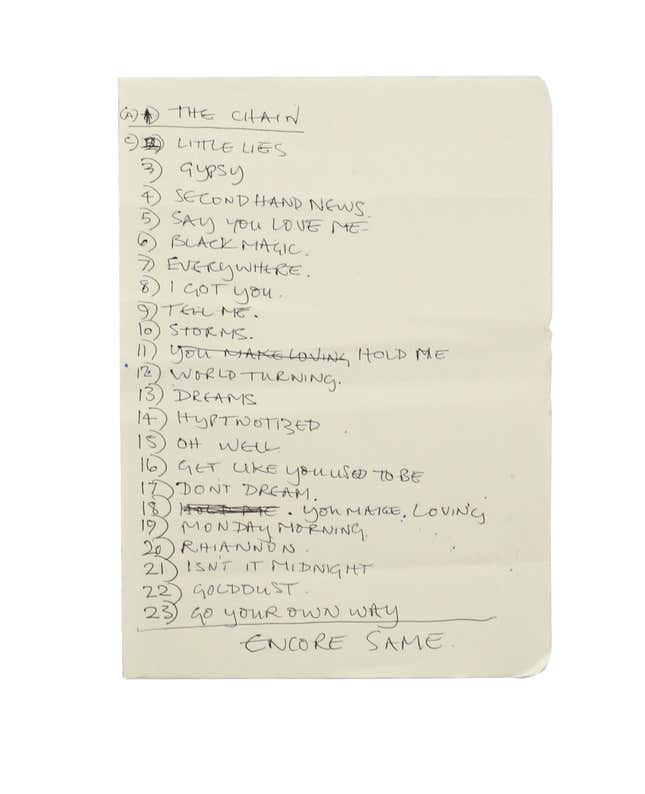 (A) 1) THE CHAIN
C) 2) LITTLE LIES
3) GYPSY
4) SECOND HAND NEWS.
5) SAY YOU LOVE ME
6) BLACK MAGIC.
7) EVERYWHERE.
8) I GOT YOU.
9) TELL ME.
10) STORMS.
11) YOU MAKE LOVING HOLD ME
12) WORLD TURNING.
13) DREAMS
14) HYPTNOTIZED
15) OH WELL
16) GET LIKE YOU USED TO BE
17) DONT DREAM.
18) HOLD ME. YOU MAKE. LOVING
19) MONDAY MORNING.
20) RHIANNON.
21) ISNT IT MIDNIGHT
22) GOLDDUST.
23) GO YOUR OWN WAY
ENCORE SAME.